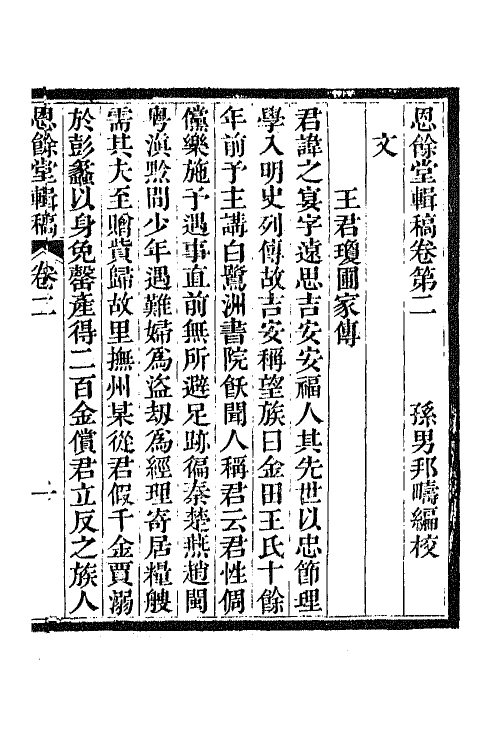 恩餘堂輯稿卷第二　　孫男邦疇編校
文
王君瓊圃家傳
君諱之寘字遠思吉安安福人其先世以忠節理
學入明史列傳故吉安稱望族曰金田王氏十餘
年前予主講白鷺洲書院飫聞人稱君云君性倜
儻樂施予遇事直前無所避足跡徧秦楚燕趙閩
粵滇黔間少年遇難婦爲盜刼爲經理寄居糧艘
需其夫至贈貲歸故里撫州某從君假千金賈溺
於彭蠡以身免罄產得二百金償君立反之族人
恩餘堂輯稿　卷二　一